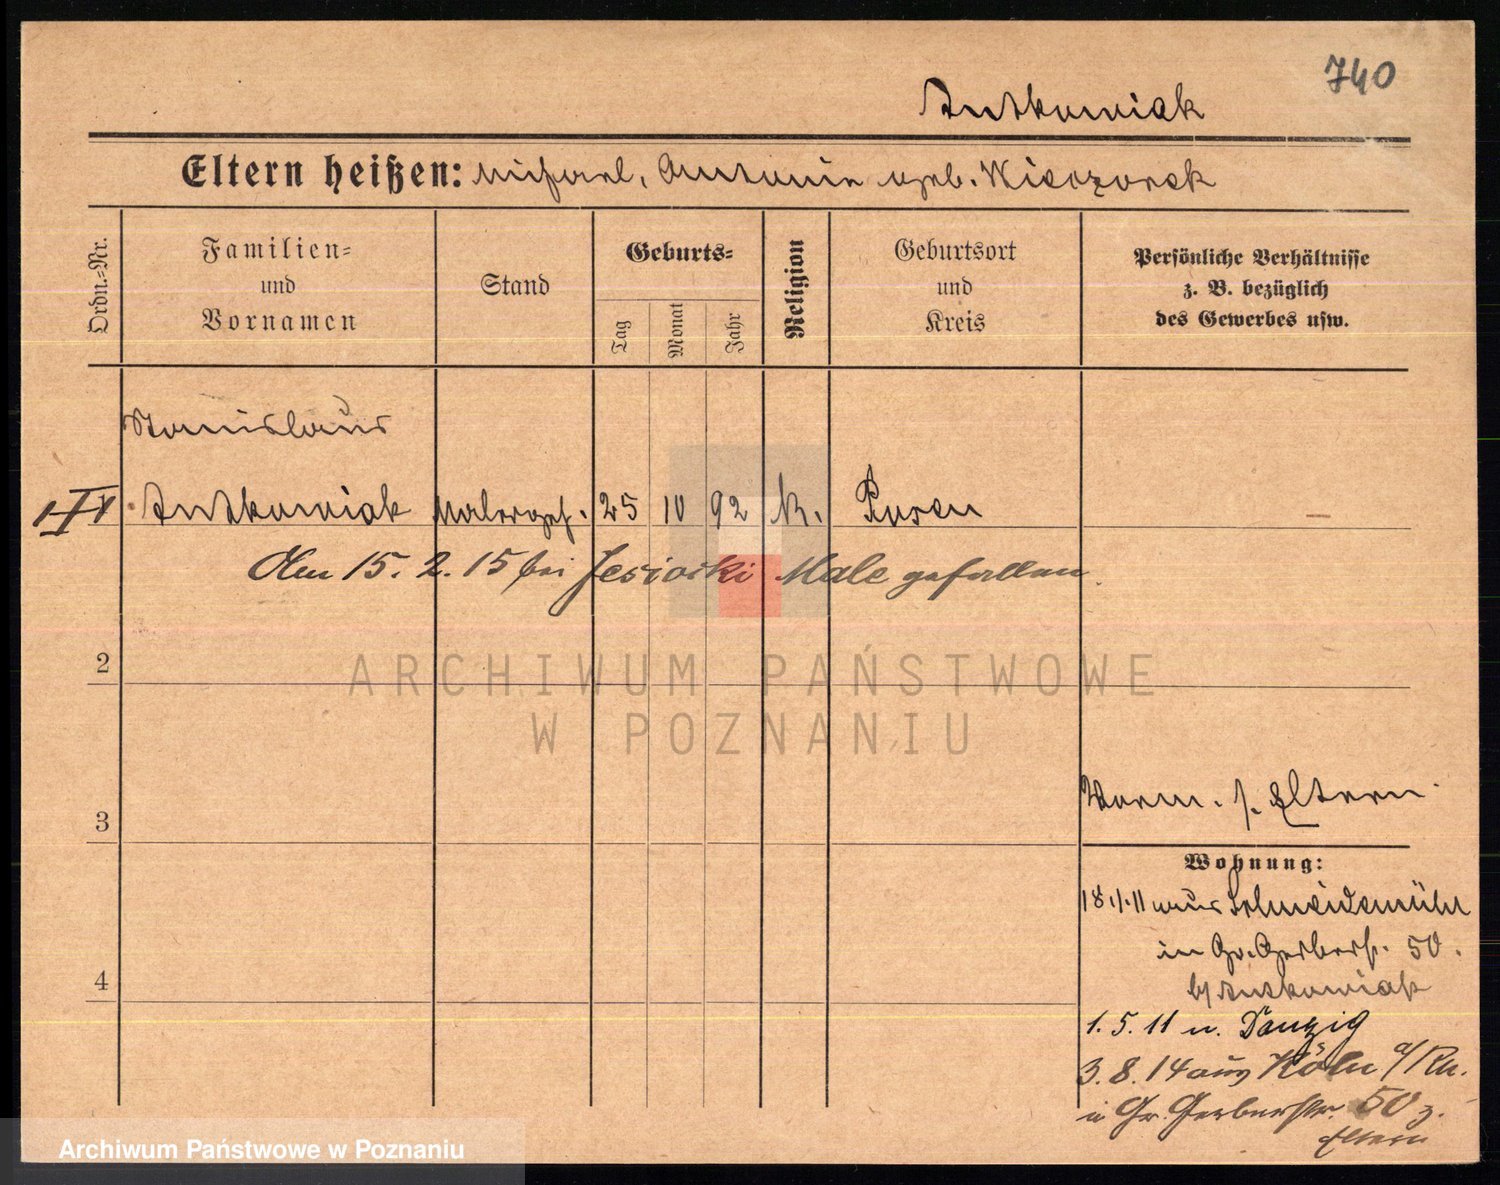 740
Antkowiak
Eltern heißen: Michael, Antonie geb. Wieczorek
Ordn.-Nr.
Familien-
und
Vornamen
Stand
Geburts-
Tag
Monat
Jahr
Religion
Geburtsort
und
Kreis
Persönliche Verhältnisse
z. B. bezüglich
des Gewerbes usw.
Stanislaus
1 Antkowiak Malergeh. 25 10 92 k. Posen —
Am 15. 2. 15 bei Jesiorki Male gefallen.
2
ARCHIWUM PAŃSTWOWE
W POZNANIU
3
Verm. s. Eltern
Wohnung:
18.1.11 aus Schneidemühl
in Gr. Gerberst. 50.
b/ Antkowiak
4
1. 5. 11 n. Danzig
3. 8. 14 aus Köln a/Rh.
n Gr. Gerberstr. 50 z.
Eltern
Archiwum Państwowe w Poznaniu